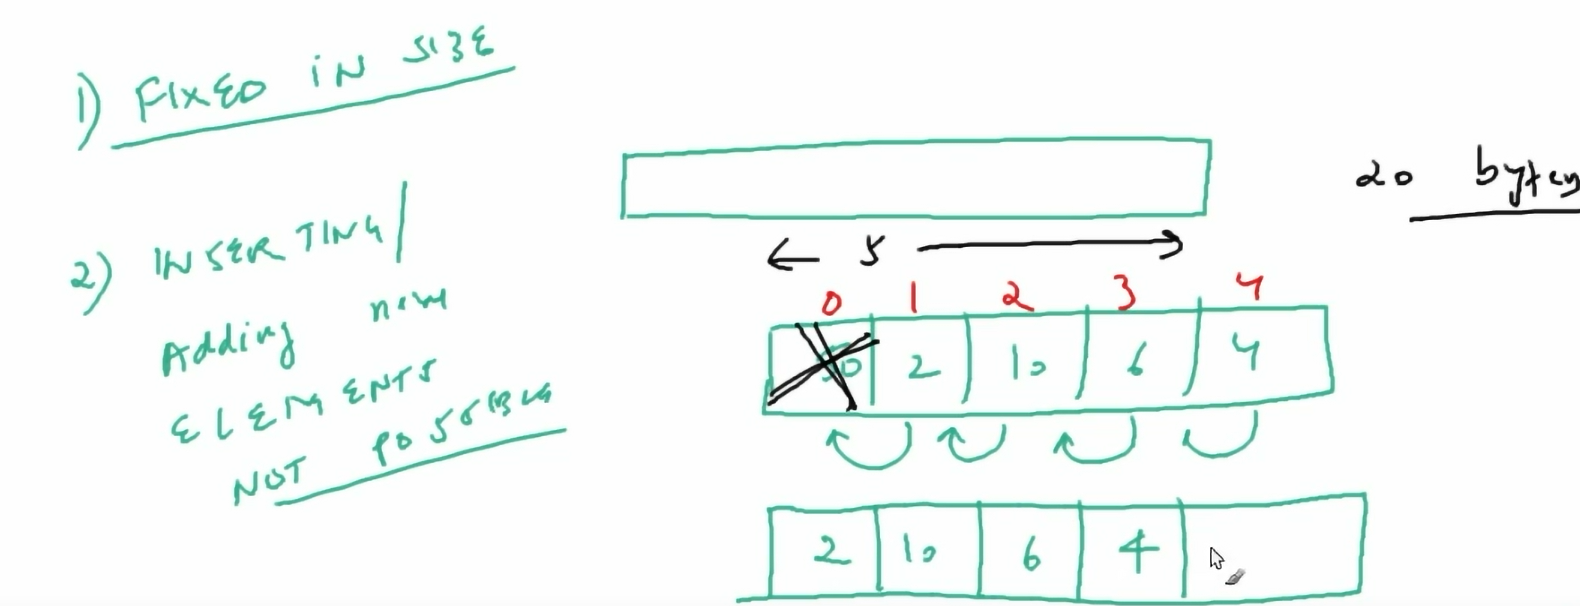 1) FIXED IN SIZE
20 bytes
2) INSERTING/
Adding new
ELEMENTS
NOT POSSIBLE
5
0 1 2 3 4
50 2 10 6 4
2 10 6 4